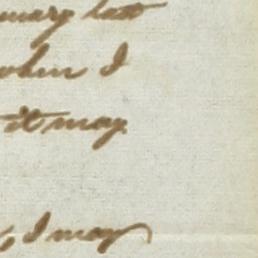 last
when I
it may
I may